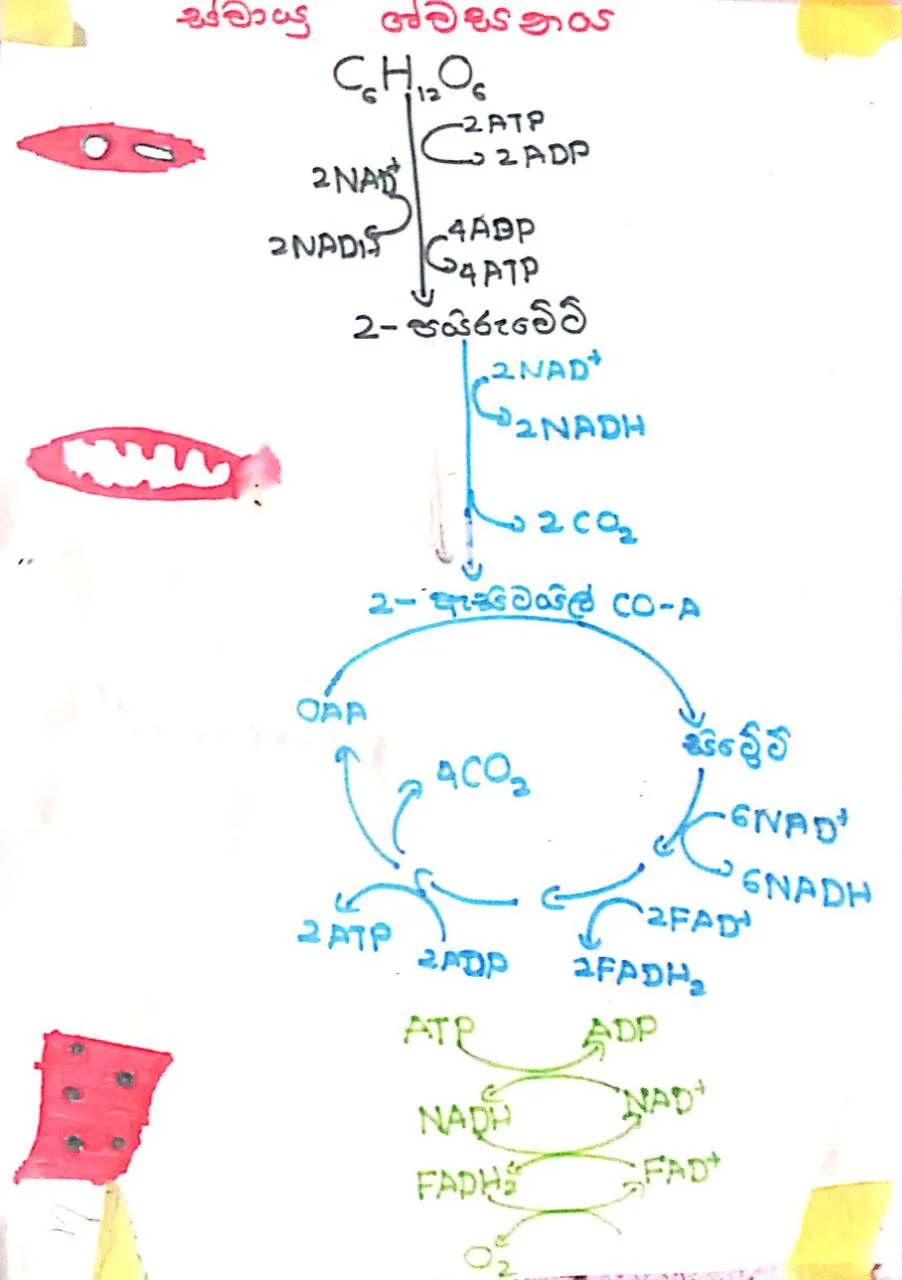 ස්වායු ශ්වසනය
C₆H₁₂O₆
2ATP
2ADP
2NAD⁺
2NADH
4ADP
4ATP
2-පයිරුවේට්
2NAD⁺
2NADH
2CO₂
2-ඇසිටයිල් CO-A
OAA
සිට්‍රේට්
4CO₂
6NAD⁺
6NADH
2FAD⁺
2FADH₂
2ATP
2ADP
ATP ADP
NADH NAD⁺
FADH₂ FAD⁺
O₂